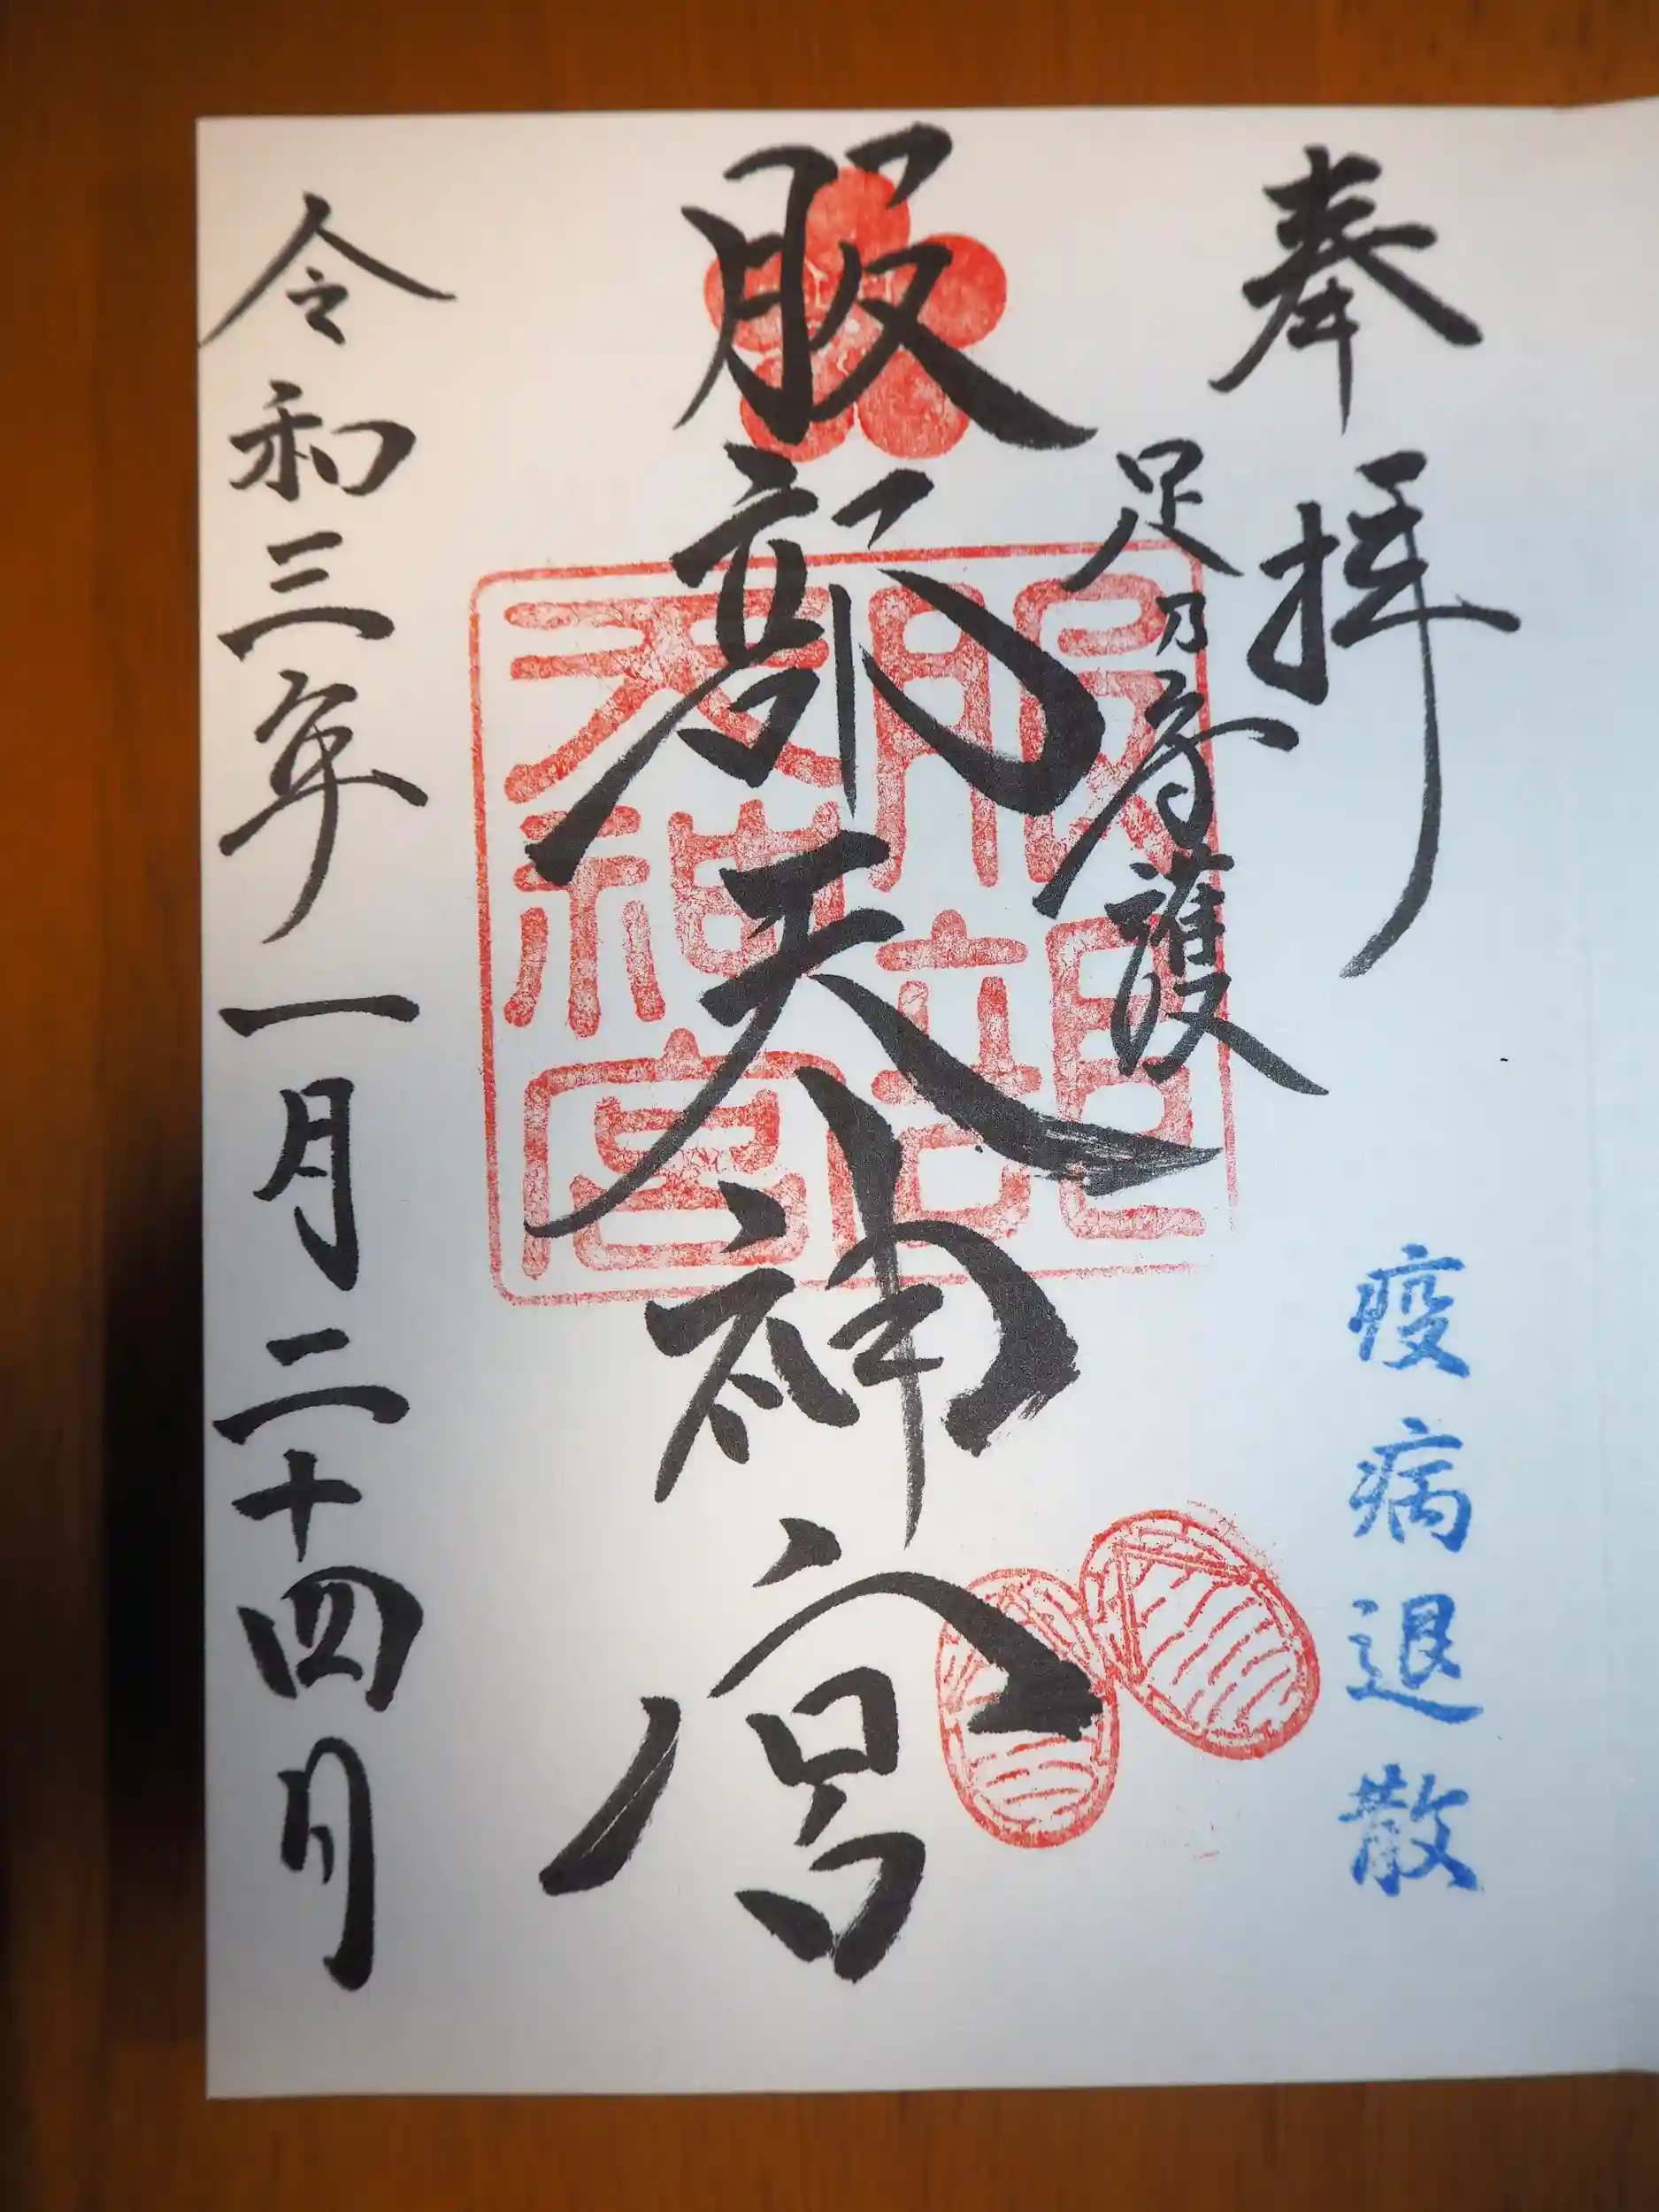 奉拝
疫病退散
足乃守護
服部天神宮
服部
天神宮
令和三年一月二十四日